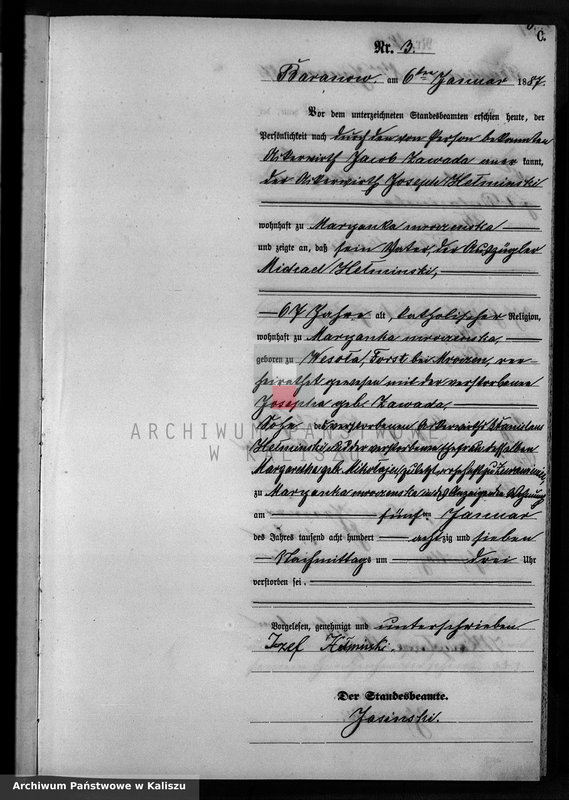 C.
Nr. 3.
Baranow, am 6ten Januar 1887.
Vor dem unterzeichneten Standesbeamten erschien heute, der
Persönlichkeit nach durch den von Person bekannten
Ackerwirth Jacob Zawada aner kannt,
der Ackerwirth Joseph Hełminski
wohnhaft zu Maryanka mroczenska
und zeigte an, daß sein Vater, der Auszügler
Michael Hełminski,
67 Jahre alt, katholischer Religion,
wohnhaft zu Maryanka mroczenska,
geboren zu Wesoła, Forst bei Mroczen, ver-
heirathet gewesen mit der verstorbene
Josepha geb. Zawada,
Sohn des verstorbenen Ackerwirths Stanislaus
Hełminski und der verstorbenen Ehefrau desselben
Margarethe geb. Mikołajec, zuletzt wohnhaft zu
zu Maryanka mroczenska in des Anzeigenden Wohnung
am fünften Januar
des Jahres tausend acht hundert achtzig und sieben
Nachmittags um drei Uhr
verstorben sei.
Vorgelesen, genehmigt und unterschrieben
Jozef Hełminski.
Der Standesbeamte.
Jasinski.
ARCHIWUM PAŃSTWOWE
W KALISZU
Archiwum Państwowe w Kaliszu